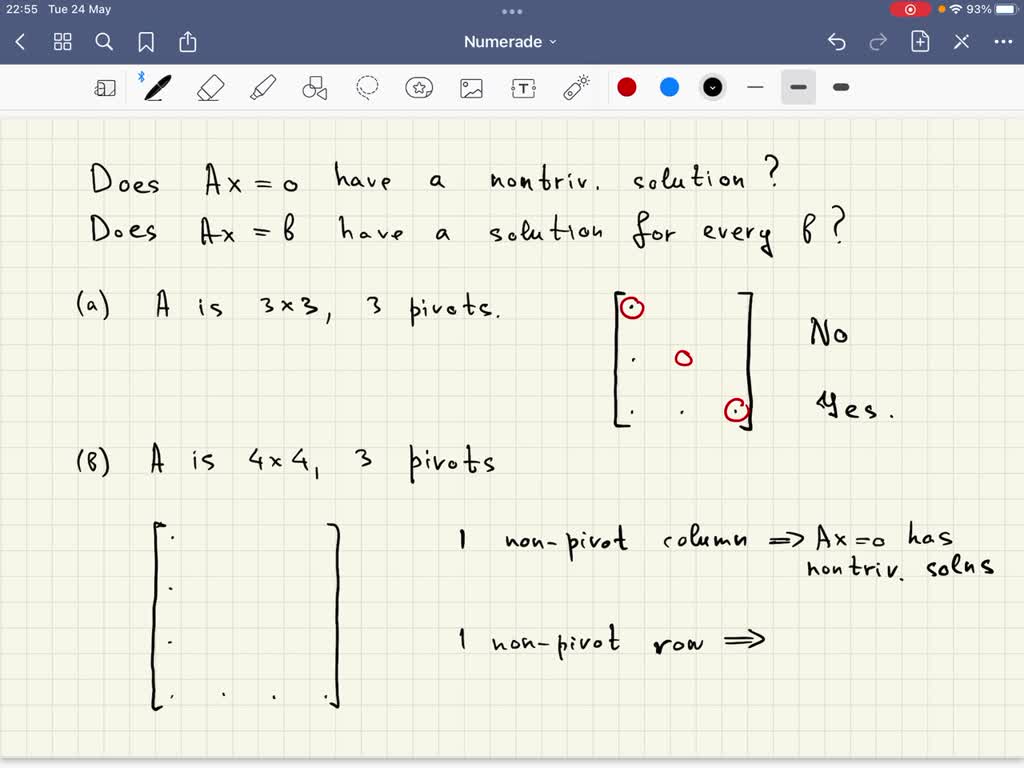 22:55 Tue 24 May 93%
Numerade
T
Does Ax = 0 have a nontriv. solution?
Does Ax = b have a solution for every b?
(a) A is 3x3, 3 pivots.
No
Yes.
(b) A is 4x4, 3 pivots
1 non-pivot column => Ax=0 has
nontriv. solns
1 non-pivot row =>